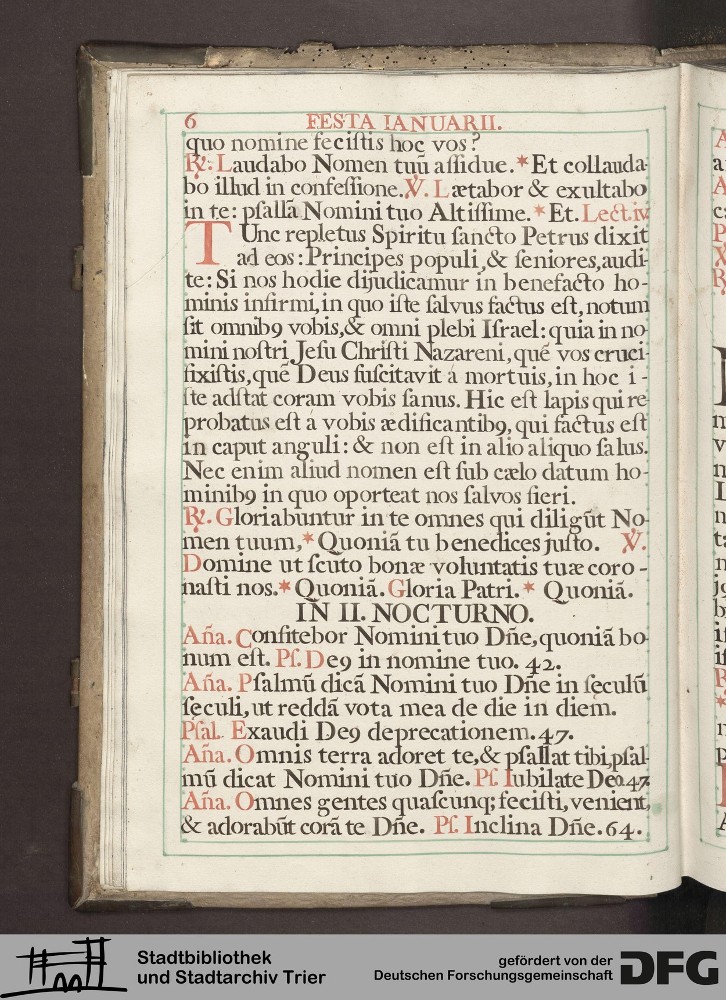 6 FESTA IANUARII.
quo nomine feciſtis hoc vos?
℟. Laudabo Nomen tuũ aſſidue.*Et collauda-
bo illud in confeſſione.℣. Lætabor & exultabo
in te: pſallã Nomini tuo Altiſſime.*Et. Lect.iv
TUnc repletus Spiritu ſancto Petrus dixit
ad eos: Principes populi,& ſeniores,audi-
te: Si nos hodie dijudicamur in benefacto ho-
minis infirmi,in quo iſte ſalvus factus eſt,notum
ſit omnibꝯ vobis,& omni plebi Iſrael: quia in no
mini noſtri Jeſu Chriſti Nazareni,quẽ vos cruci-
fixiſtis,quẽ Deus ſuſcitavit á mortuis,in hoc i-
ſte adſtat coram vobis ſanus. Hic eſt lapis qui re
probatus eſt á vobis ædificantibꝯ, qui factus eſt
in caput anguli: & non eſt in alio aliquo ſalus.
Nec enim aliud nomen eſt ſub cælo datum ho-
minibꝯ in quo oporteat nos ſalvos fieri.
℟. Gloriabuntur in te omnes qui diligũt No-
men tuum,* Quoniã tu benedices juſto. ℣.
Domine ut ſcuto bonæ voluntatis tuæ coro-
naſti nos.* Quoniã. Gloria Patri.* Quoniã.
IN II. NOCTURNO.
Aña. Confitebor Nomini tuo Dñe,quoniã bo-
num eſt. Pſ. Deꝯ in nomine tuo. 42.
Aña. Pſalmũ dicã Nomini tuo Dñe in ſęculũ
ſęculi,ut reddã vota mea de die in diem.
Pſal. Exaudi Deꝯ deprecationem.47.
Aña. Omnis terra adoret te,& pſallat tibi,pſal-
mũ dicat Nomini tuo Dñe. Pſ. Iubilate Deo.47
Aña. Omnes gentes quaſcunq; feciſti,venient,
& adorabũt corã te Dñe. Pſ. Inclina Dñe.64.
Stadtbibliothek
und Stadtarchiv Trier
gefördert von der
Deutschen Forschungsgemeinschaft
DFG